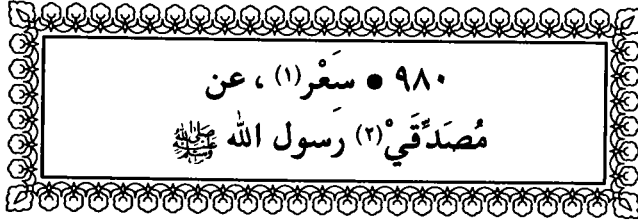 ٩٨٠ ● سَعْر(١) ، عن
مُصَدِّقَيْ(٢) رَسول الله ﷺ